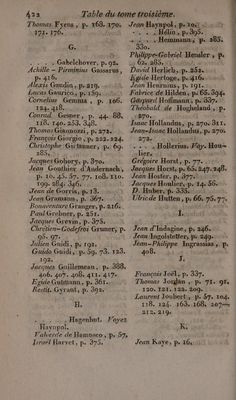 422 Table du tome troisième.
Thomas Fyens, p. 168. 170.
171. 176.
G.
. . . . Gabelchover. p. 92.
Achille - Pirminius Gassarus,
p. 416.
Alexis Gaudin, p. 219.
Lucas Gaurico, p. 89.
Cornelius Gemma, p. 106.
124. 418.
Conrad Gesner, p. 44. 88.
118. 140. 253. 348.
Thomas Giannozzi, p. 272.
François Giorgio, p. 222. 224.
Christophe Gurtanner, p. 69.
285.
Jacques Gohory, p. 370.
Jean Gonthier d'Andernach,
p. 10. 45. 57. 77. 108. 110.
199. 284. 346.
Jean de Gorris, p. 13.
Jean Gramann, p. 367.
Bonaventure Granger, p. 216.
Paul Grebner, p. 251.
Jacques Grevin, p. 378.
Chrétien-Godefroi Gruner, p.
95. 97.
Julien Guidi, p. 191.
Guido Guidi, p. 59. 73. 123.
192.
Jacques Guillemeau, p. 388.
406. 407. 408. 411. 417.
Egide Gutmann, p. 361.
Restit. Gyrant, p. 392.
H.
. . . . Hagenbut. Voyez
Haynpol.
Valverde de Hamusco, p. 57.
Israël Harvet, p. 375.
Jean Haynpol, p. 10.
. . . . Hélin, p. 395.
. . . . Hemmann, p. 285.
330.
Philippe-Gabriel Hensler, p.
62. 285.
David Herlich, p. 251.
Egide Hertoge, p. 416.
Jean Heurnius, p. 191.
Fabrice de Hilden, p. 65. 394.
Gaspard Hofmann, p. 337.
Théobald de Hogheland, p.
270.
Isaac Hollandus, p. 270. 311.
Jean-Isaac Hollandus, p. 270.
272.
. . . . Hollerius. Voy. Houllier.
Grégoire Horst, p. 77.
Jacques Horst, p. 65. 247. 248.
Jean Houler, p. 377.
Jacques Houlier, p. 14. 56.
D. Huber, p. 335.
Ulric de Hutten, p. 66. 75. 77.
I.
Jean d'Indagine, p. 246.
Jean Ingolstetter, p. 249.
Jean-Philippe Ingrassias, p.
408.
J.
François Joël, p. 337.
Thomas Jordan, p. 71. 91.
120. 121. 122. 209.
Laurent Joubert, p. 57. 104.
118. 124. 163. 168. 207—
212. 219.
K.
Jean Kaye, p. 16.